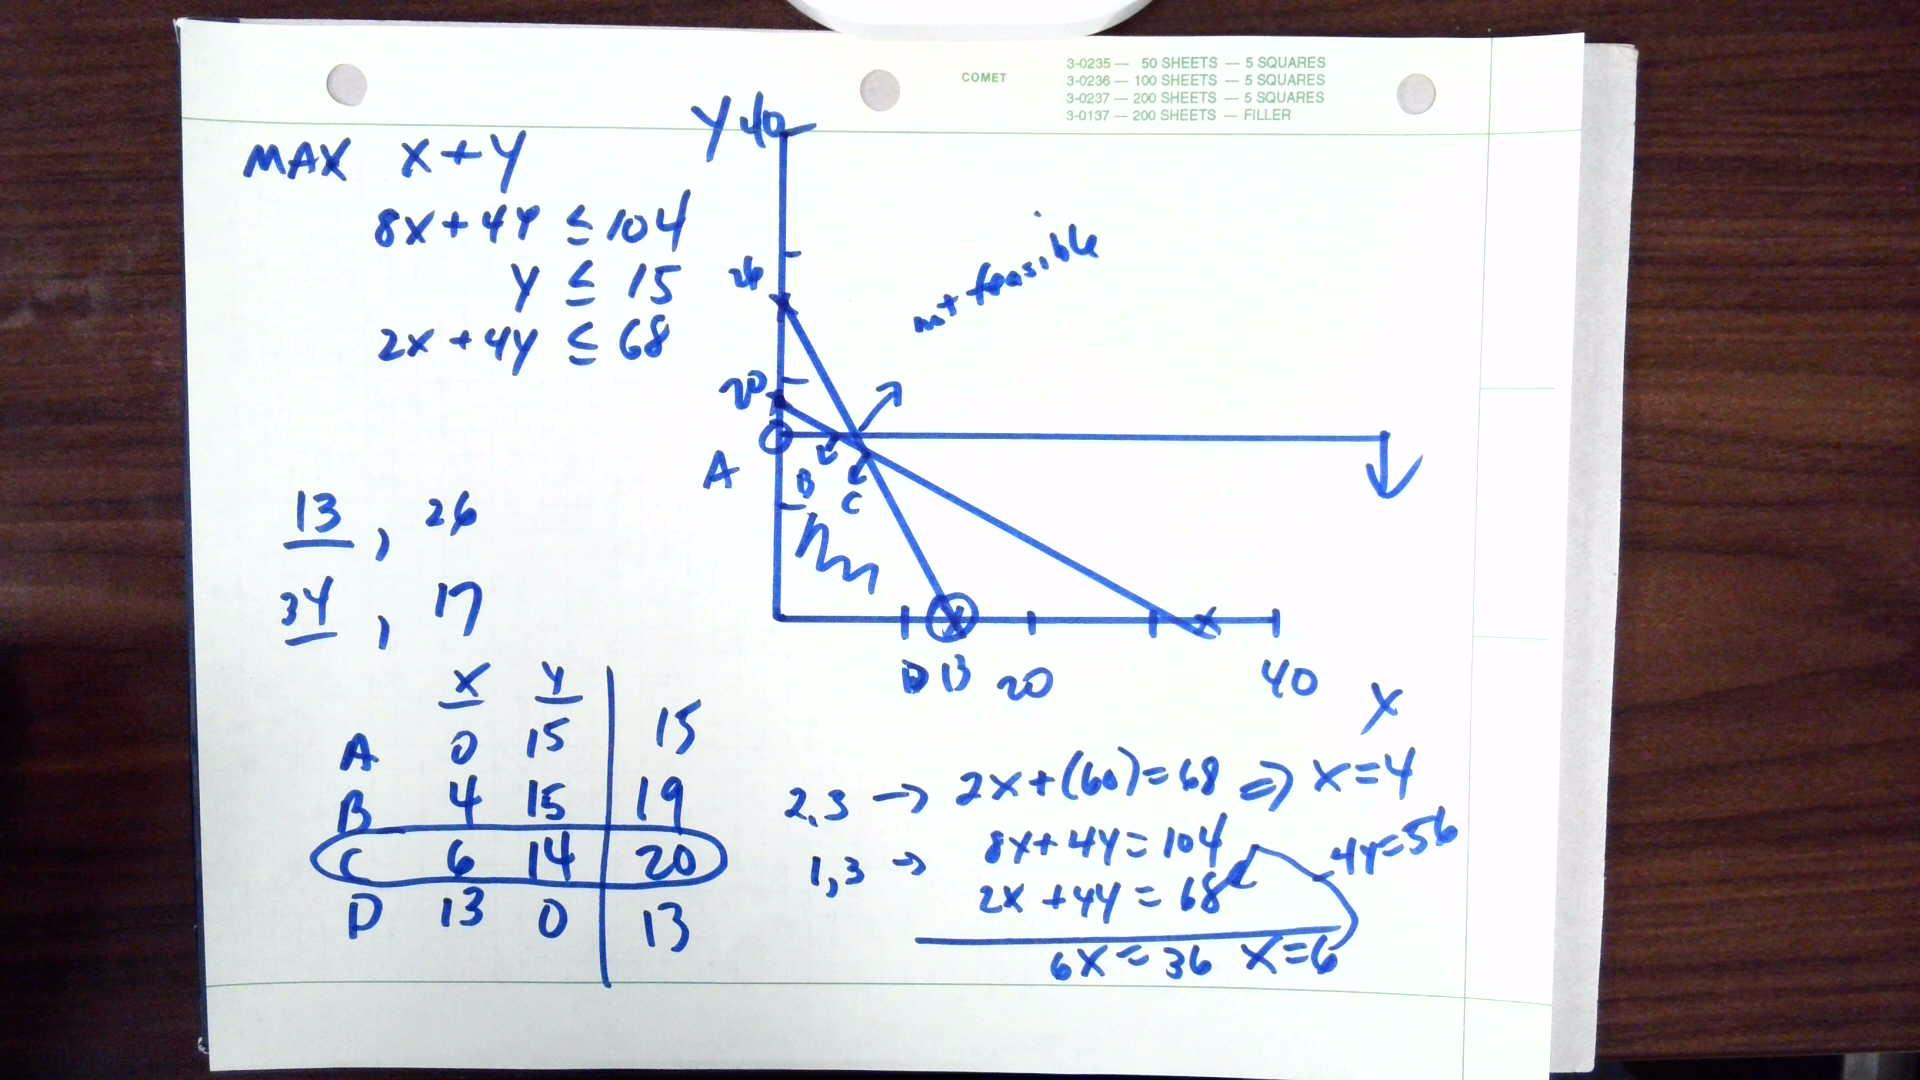 COMET
3-0235 — 50 SHEETS — 5 SQUARES
3-0236 — 100 SHEETS — 5 SQUARES
3-0237 — 200 SHEETS — 5 SQUARES
3-0137 — 200 SHEETS — FILLER
MAX X+Y
8X+4Y ≤ 104
Y ≤ 15
2X+4Y ≤ 68
Y 40
26
20
not feasible
A
B
C
13 20 40
X
13, 26
34, 17
X Y
A 0 15 15
B 4 15 19
C 6 14 20
D 13 0 13
2,3 → 2X+(60)=68 ⇒ X=4
1,3 → 8X+4Y=104
4Y=56
2X+4Y=68
6X=36 X=6